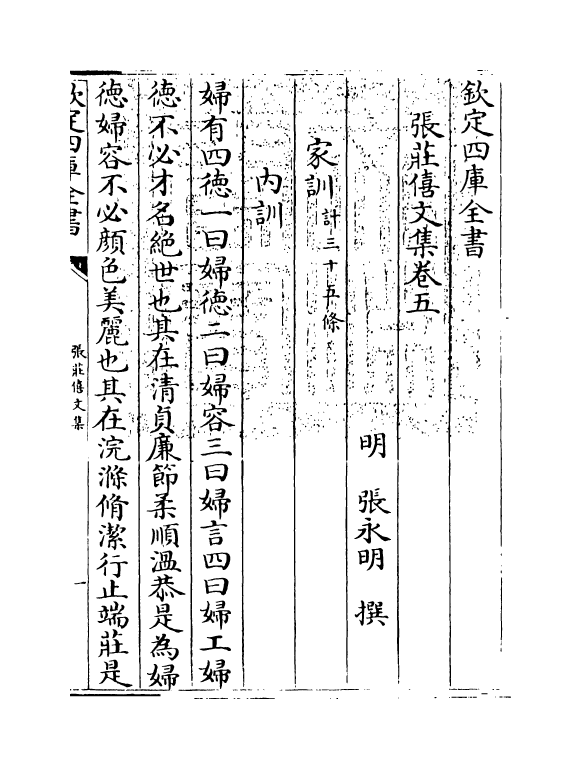 欽定四庫全書
張莊僖文集卷五
明 張永明 撰
家訓計三十五條
内訓
婦有四徳一曰婦徳二曰婦容三曰婦言四曰婦工婦
徳不必才名絶世也其在清貞廉節柔順溫恭是為婦
徳婦容不必顔色美麗也其在浣滌脩潔行止端莊是
欽定四庫全書
張莊僖文集
一